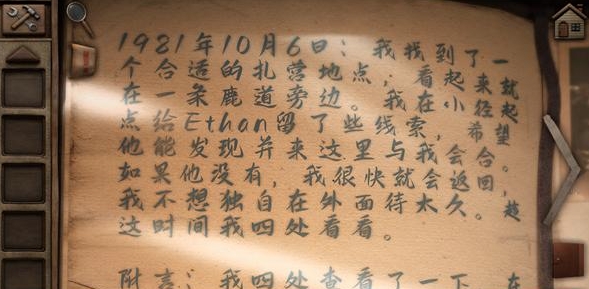 1921年10月6日：我找到了一
个合适的扎营地点；看起来就
在一条鹿道旁边。我在小径起
点给Ethan留了些线索，希望
他能发现并来这里与我会合。
如果他没有，我很快就会返回，
我不想独自在外面待太久。趁
这时间我四处看看。
附言：我四处查看了一下，在